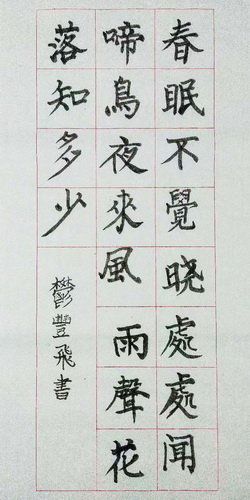 春眠不覺晓處處闻
啼鳥夜來風雨聲花
落知多少
鬱豐飛書